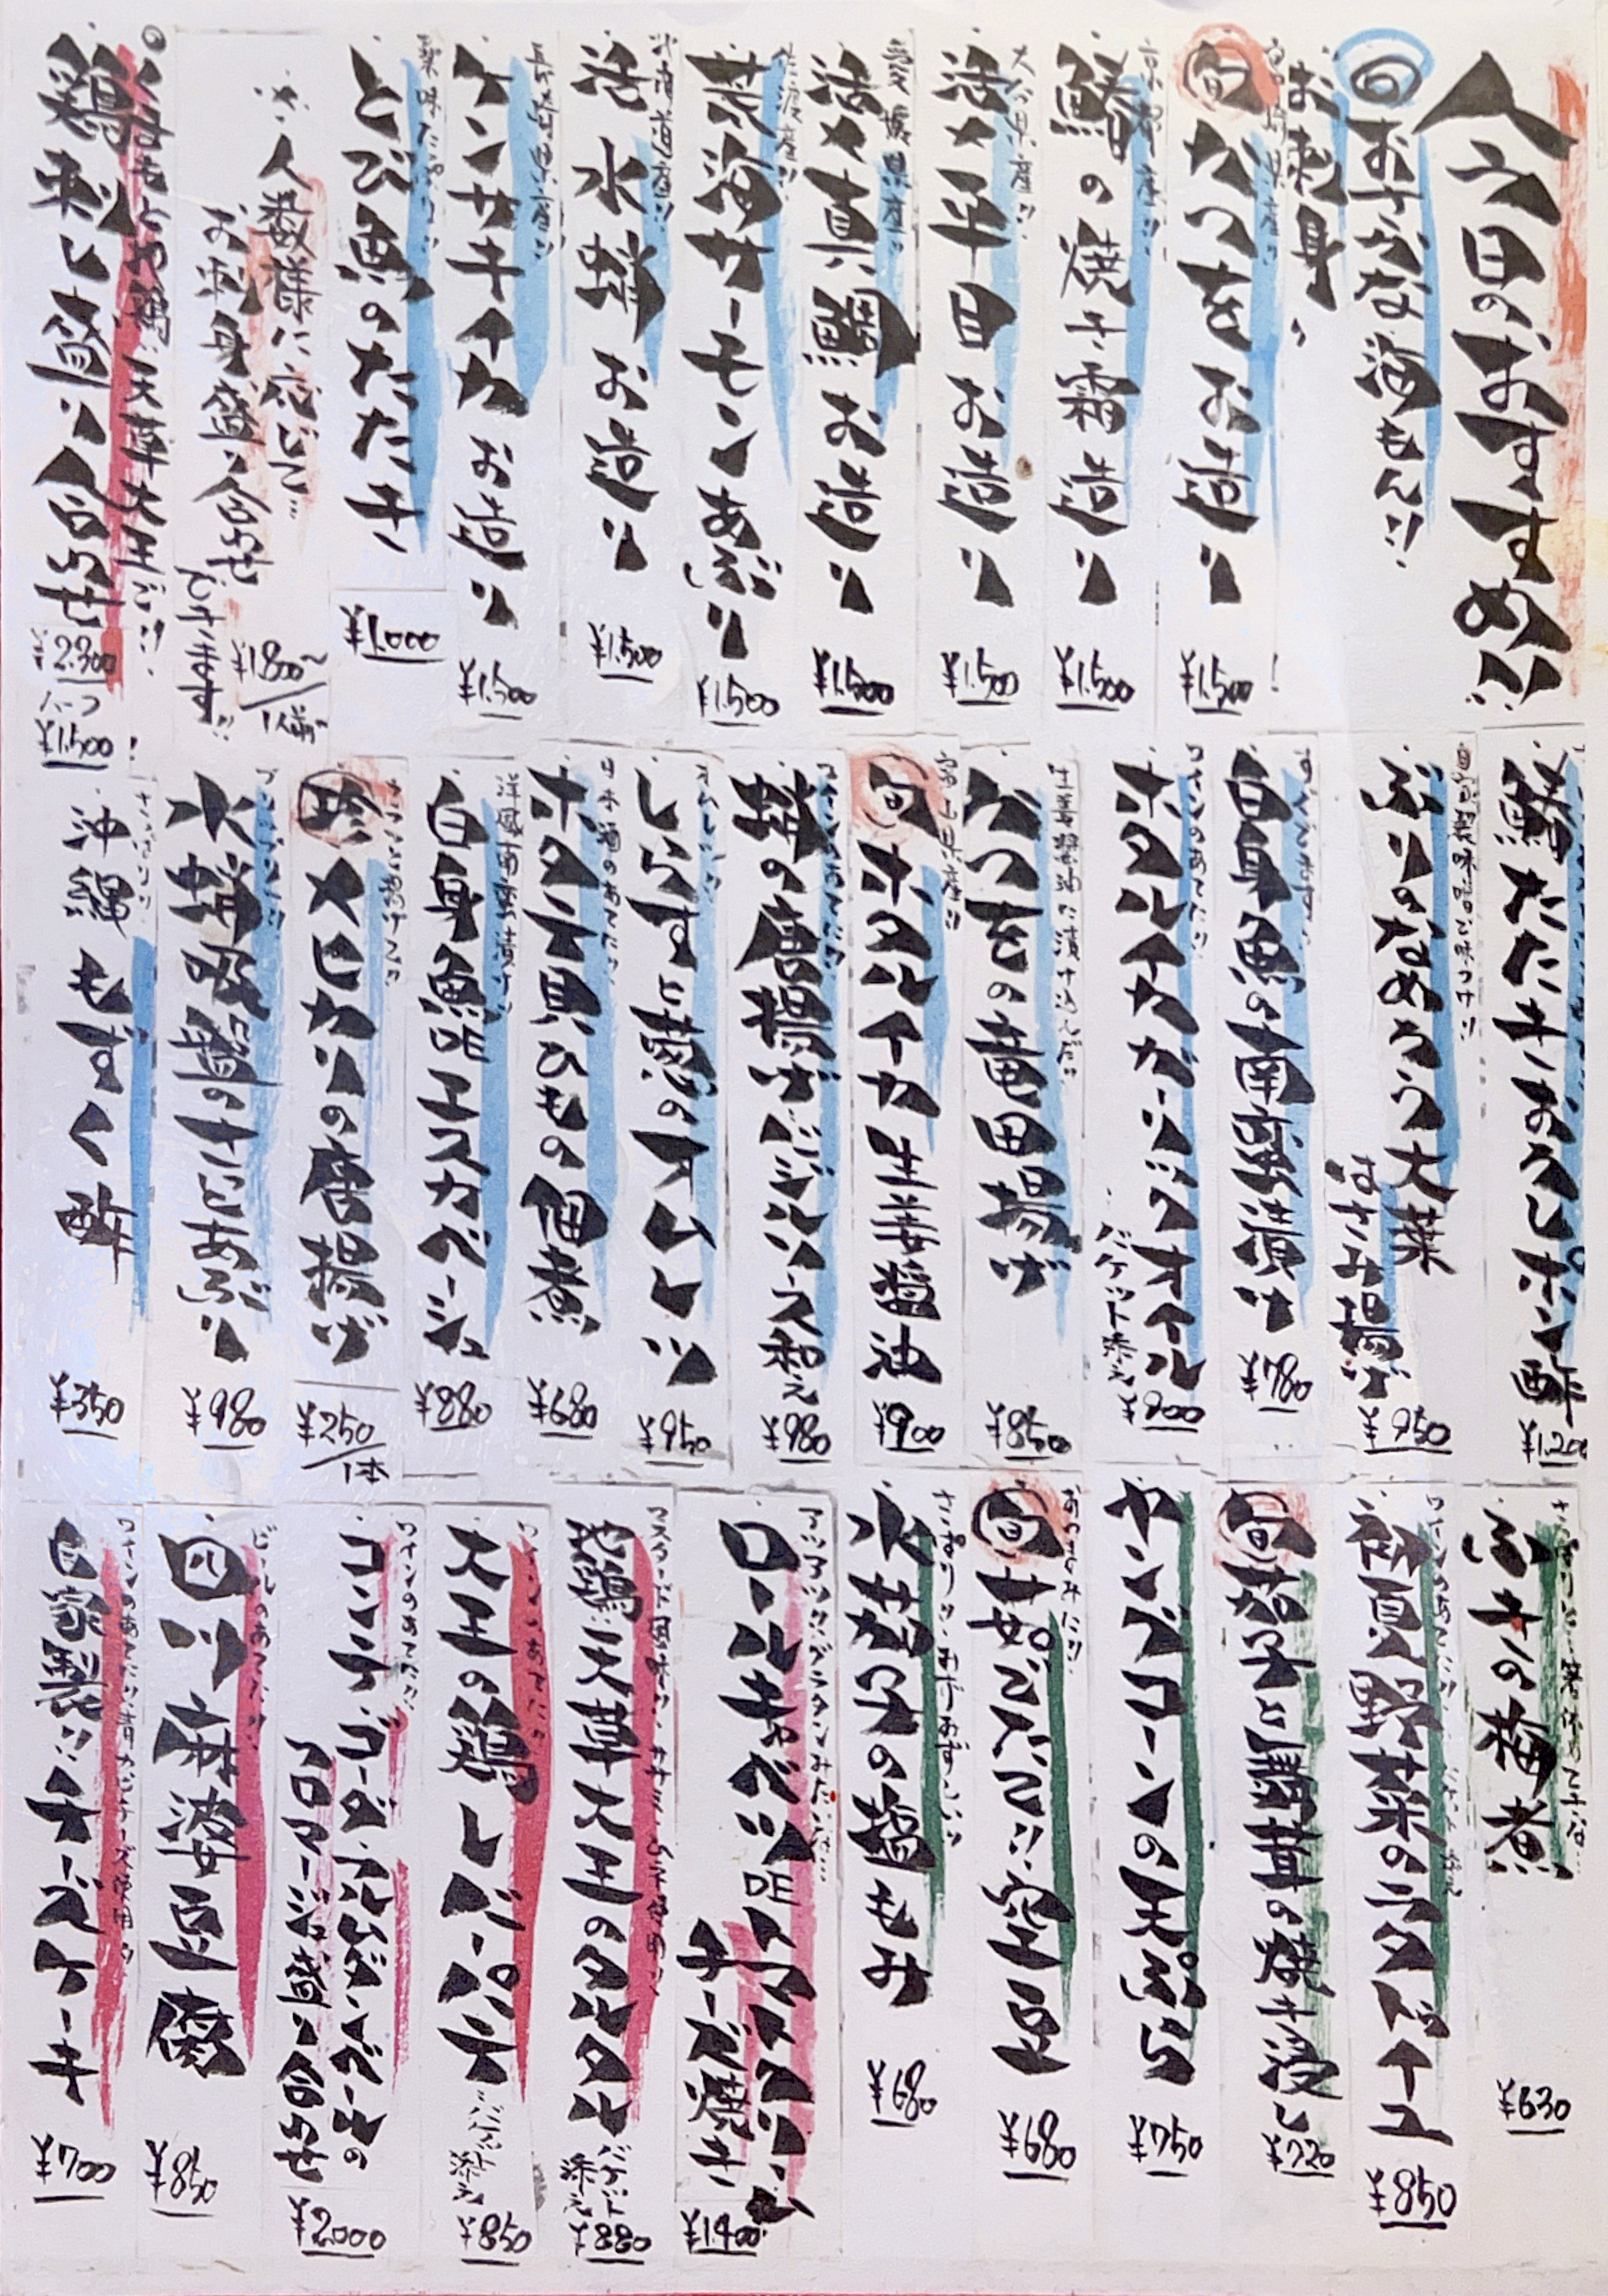 今日のおすすめ!!
旬 おすすめな海もん!!
お刺身
宮崎県産!!
旬 かつを お造り
¥1,500
京都産!!
鰆の焼き霜造り
¥1,500
大分県産!!
活〆平目お造り
¥1,500
愛媛県産!!
活〆真鯛お造り
¥1,500
佐渡産!!
荒海サーモンあぶり
¥1,500
北海道産!!
活 水蛸 お造り
¥1,500
長崎県産!!
ケンサキイカ お造り
¥1,500
薬味たっぷり!!
とび魚のたたき
¥1,000
人数様に応じて…
お刺身盛り合わせ
できます!!
¥1,800〜/1人前
くまもと地鶏 天草大王!!
鶏刺し盛り合わせ
¥2,300
ハーフ
¥1,500
鰆たたき おろしポン酢
¥1,200
自家製味噌で味つけ!!
ぶりのなめろう大葉
はさみ揚げ
¥950
白身魚の南蛮漬け
¥780
ワインのあてに!!
ホタルイカガーリックオイル
バケット添え
¥900
生姜醤油に漬け込んだ!!
かつをの竜田揚げ
¥850
富山県産!!
旬 ホタルイカ 生姜醤油
¥900
蛸の唐揚げジンジャーソース和え
¥980
しらすと葱のオムレツ
¥950
日本酒のあてに!!
ホタテ貝ひもの佃煮
¥680
洋風南蛮漬け!!
白身魚のエスカベーシュ
¥880
珍 メヒカリの唐揚げ
¥250/1本
水蛸吸盤のさっとあぶり
¥980
さっぱり!!
沖縄もずく酢
¥350
ふきの梅煮
¥630
ワインのあてに!!
初夏野菜のラタトゥイユ
¥850
旬 茄子と蚕豆の焼き浸し
¥720
ヤングコーンの天ぷら
¥750
おつまみに!!
旬 サヤごと!! 空豆
¥680
水茄子の塩もみ
¥680
アツアツ!! グラタンみたいな…
ロールキャベツのトマトソース
チーズ焼き
¥1,400
マスタード風味!! ササミ・ムネ使用!!
地鶏 天草大王のタルタル
バケット添え
¥880
ワインのあてに!!
大王の鶏レバーパテ
バケット添え
¥850
ワインのあてに!!
コンテ・ゴーダ・カマンベールの
フロマージュ盛り合わせ
¥2,000
ビールのあてに!!
四川麻婆豆腐
¥850
ワインのあてに!! 青カビチーズ使用!!
自家製!!チーズケーキ
¥700